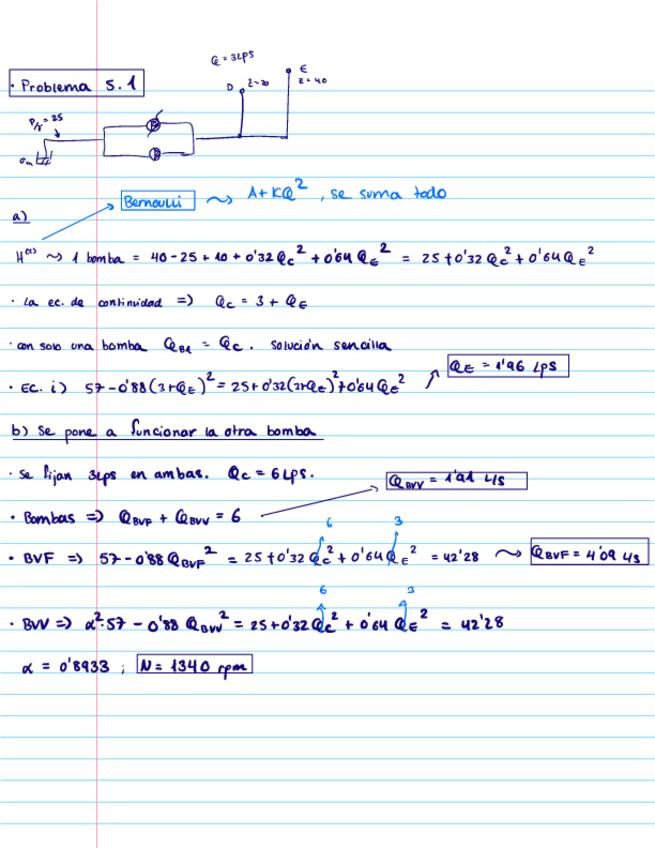 Q = 3LPS
E
z = 40
D z=20
· Problema 5.1
P/γ = 25
0m
Bernoulli ⇝ A+KQ², se suma todo
a)
H⁽¹⁾ ⇝ 1 bomba = 40 - 25 + 10 + 0'32 Qc² + 0'64 QE² = 25 + 0'32 Qc² + 0'64 QE²
· la ec. de continuidad => Qc = 3 + QE
· con solo una bomba QB1 = Qc. Solución sencilla
QE = 1'96 LPS
· EC. i) 57 - 0'88(3+QE)² = 25 + 0'32(3+QE)² + 0'64 QE²
b) Se pone a funcionar la otra bomba
· Se fijan 3LPS en ambas. Qc = 6 LPS.
QBVV = 1'91 L/S
· Bombas => QBVF + QBVV = 6
6 3
· BVF => 57 - 0'88 QBVF² = 25 + 0'32 Qc² + 0'64 QE² = 42'28 ⇝ QBVF = 4'09 L/S
6 3
· BVV => α²·57 - 0'88 QBVV² = 25 + 0'32 Qc² + 0'64 QE² = 42'28
α = 0'8933 ; N = 1340 rpm